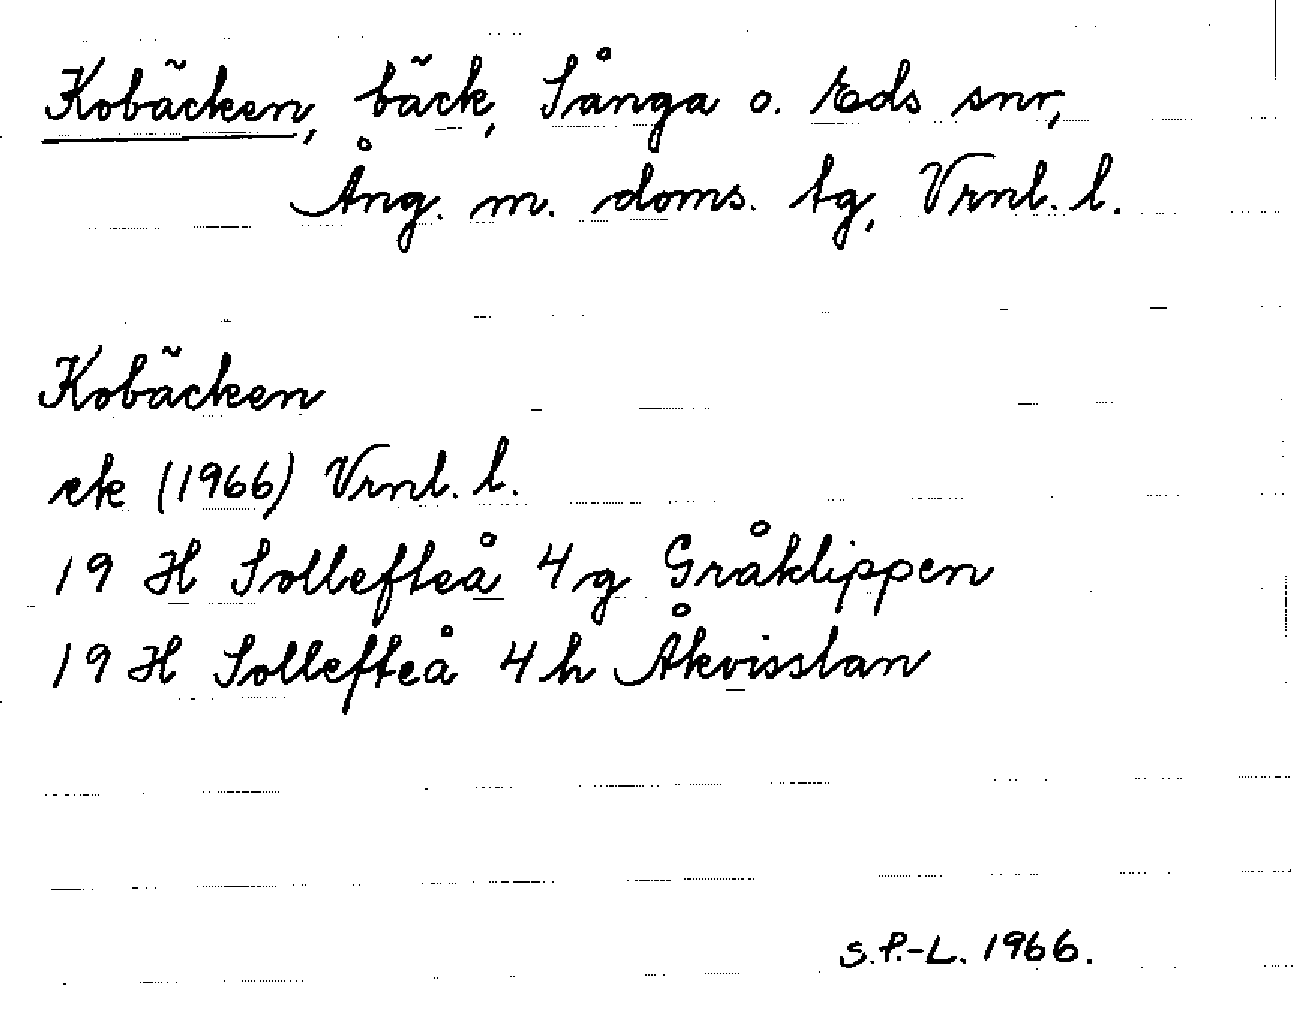 Kobäcken, bäck, Sånga o. Eds snr,
Ång. m. doms. tg, Vrnl. l.
Kobäcken
ek (1966) Vrnl. l.
19 H Sollefteå 4g Gråklippen
19 H Sollefteå 4h Åkvisslan
S.P.-L. 1966.